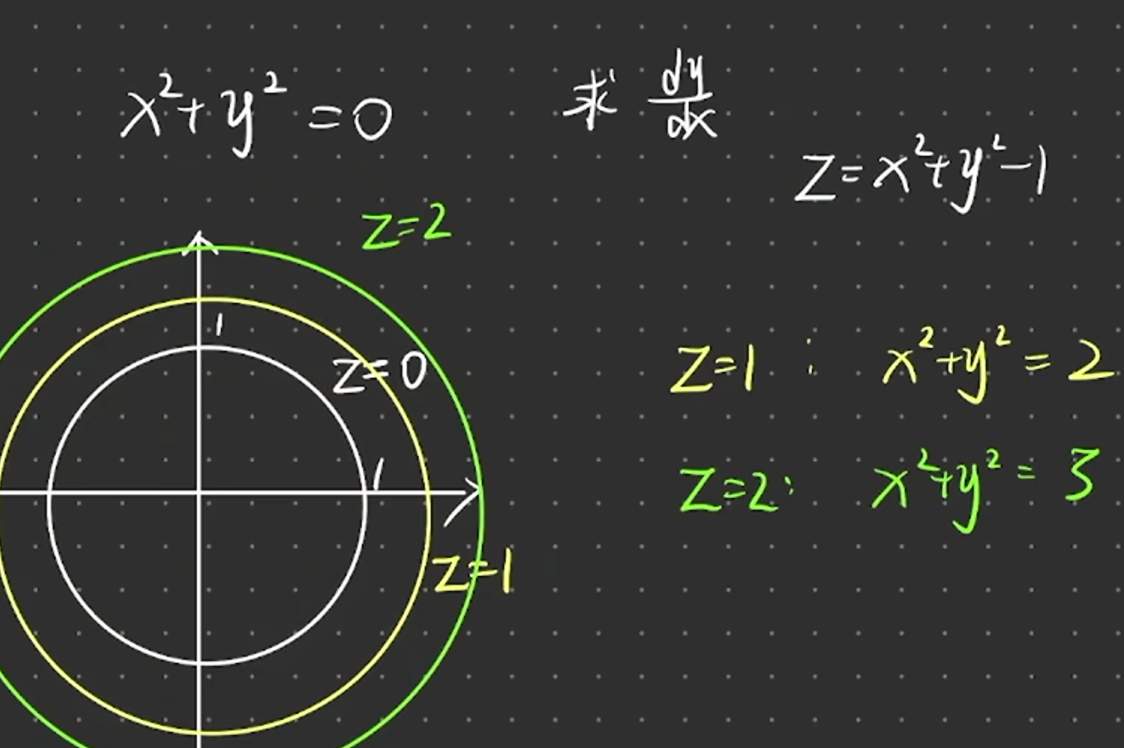 x²+y²=0
求 dy/dx
z=x²+y²-1
z=2
1
z=0
z=1 : x²+y²=2
1
z=2: x²+y²=3
z=1